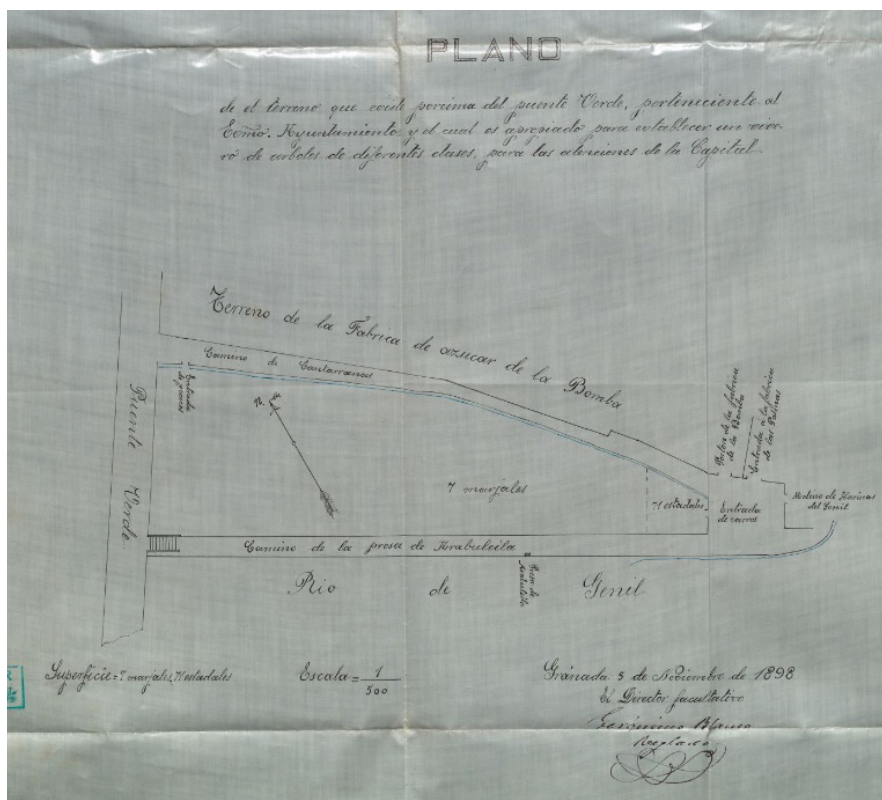 PLANO
de el terreno que existe porcima del puente Verde, perteneciente al
Excmo. Ayuntamiento y el cual es apropiado para establecer un vive-
ro de arboles de diferentes clases, para las atenciones de la Capital
Terreno de la Fabrica de azucar de la Bomba
Camino de Cantarranas
Entrada
de carros
Puente Verde
N.
7 marjales
71 estadales
Porton de la fabrica
de la Bomba
Entrada á la fabrica
de las Palmas
Entrada
de carros
Molino de Harinas
del Genil
Camino de la presa de Arabuleila
Presa de
Arabuleila
Rio de Genil
Superficie = 7 marjales 71 estadales
Escala = 1
500
Granada 5 de Noviembre de 1898
El Director facultativo
Gerónimo Blanco